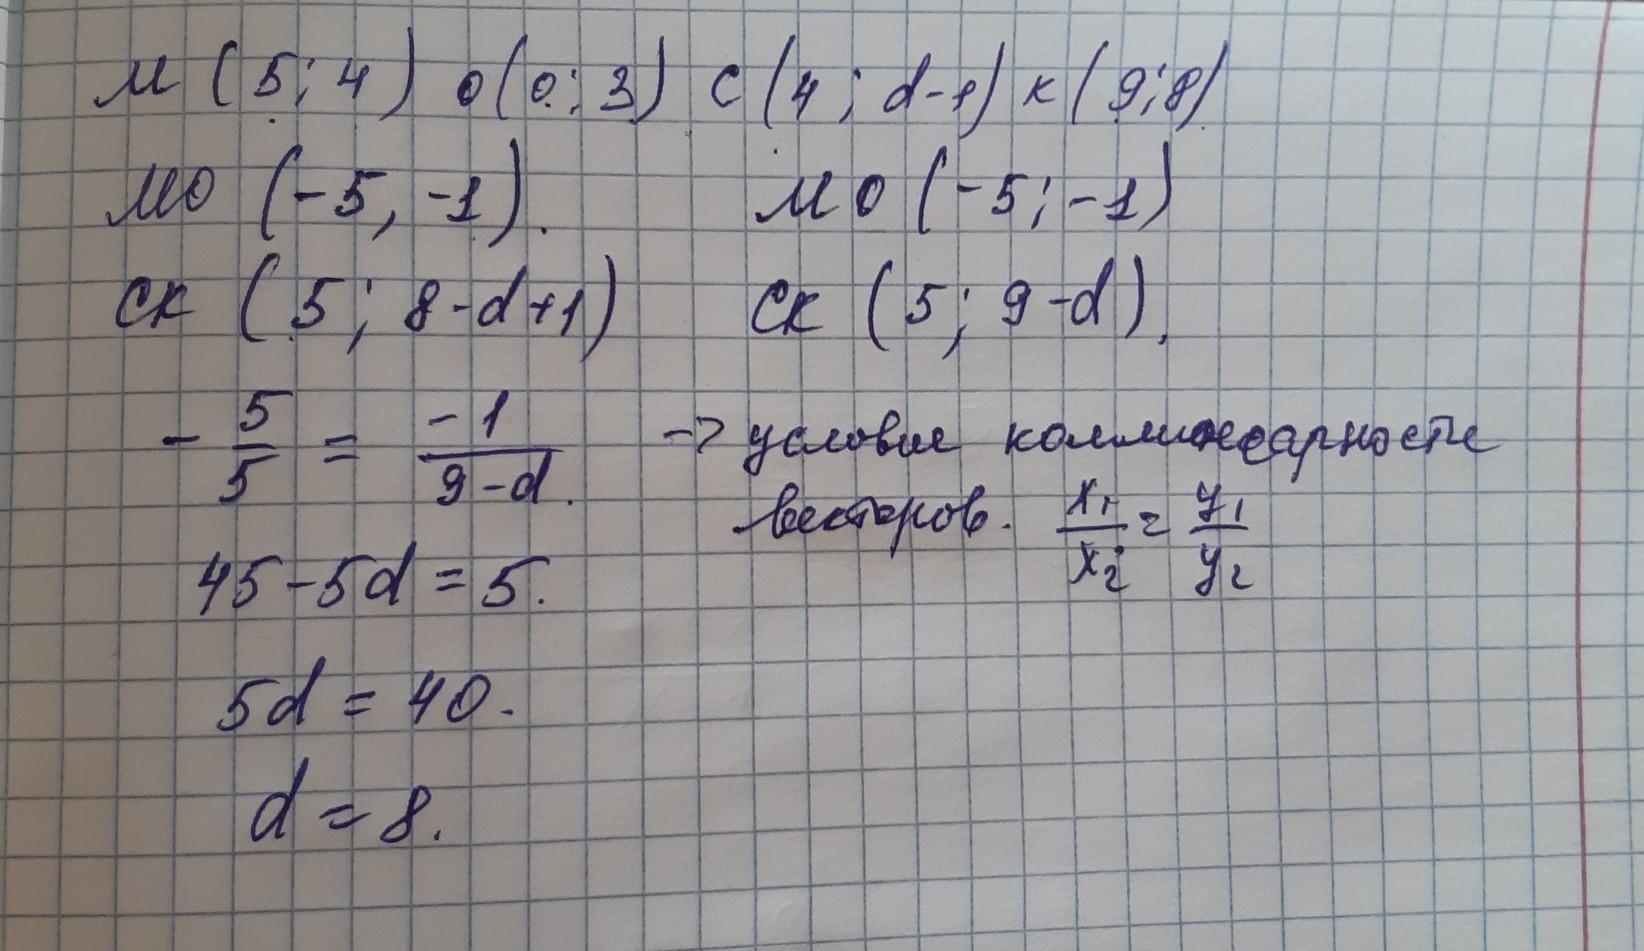 М (5; 4) О (0; 3) С (4; d-1) К (9; 8)
МО (-5, -1). МО (-5; -1)
СК (5; 8-d+1) СК (5; 9-d).
- 5/5 = -1/(9-d). -> условие коллинеарности
векторов. x₁/x₂ = y₁/y₂
45-5d = 5.
5d = 40.
d = 8.